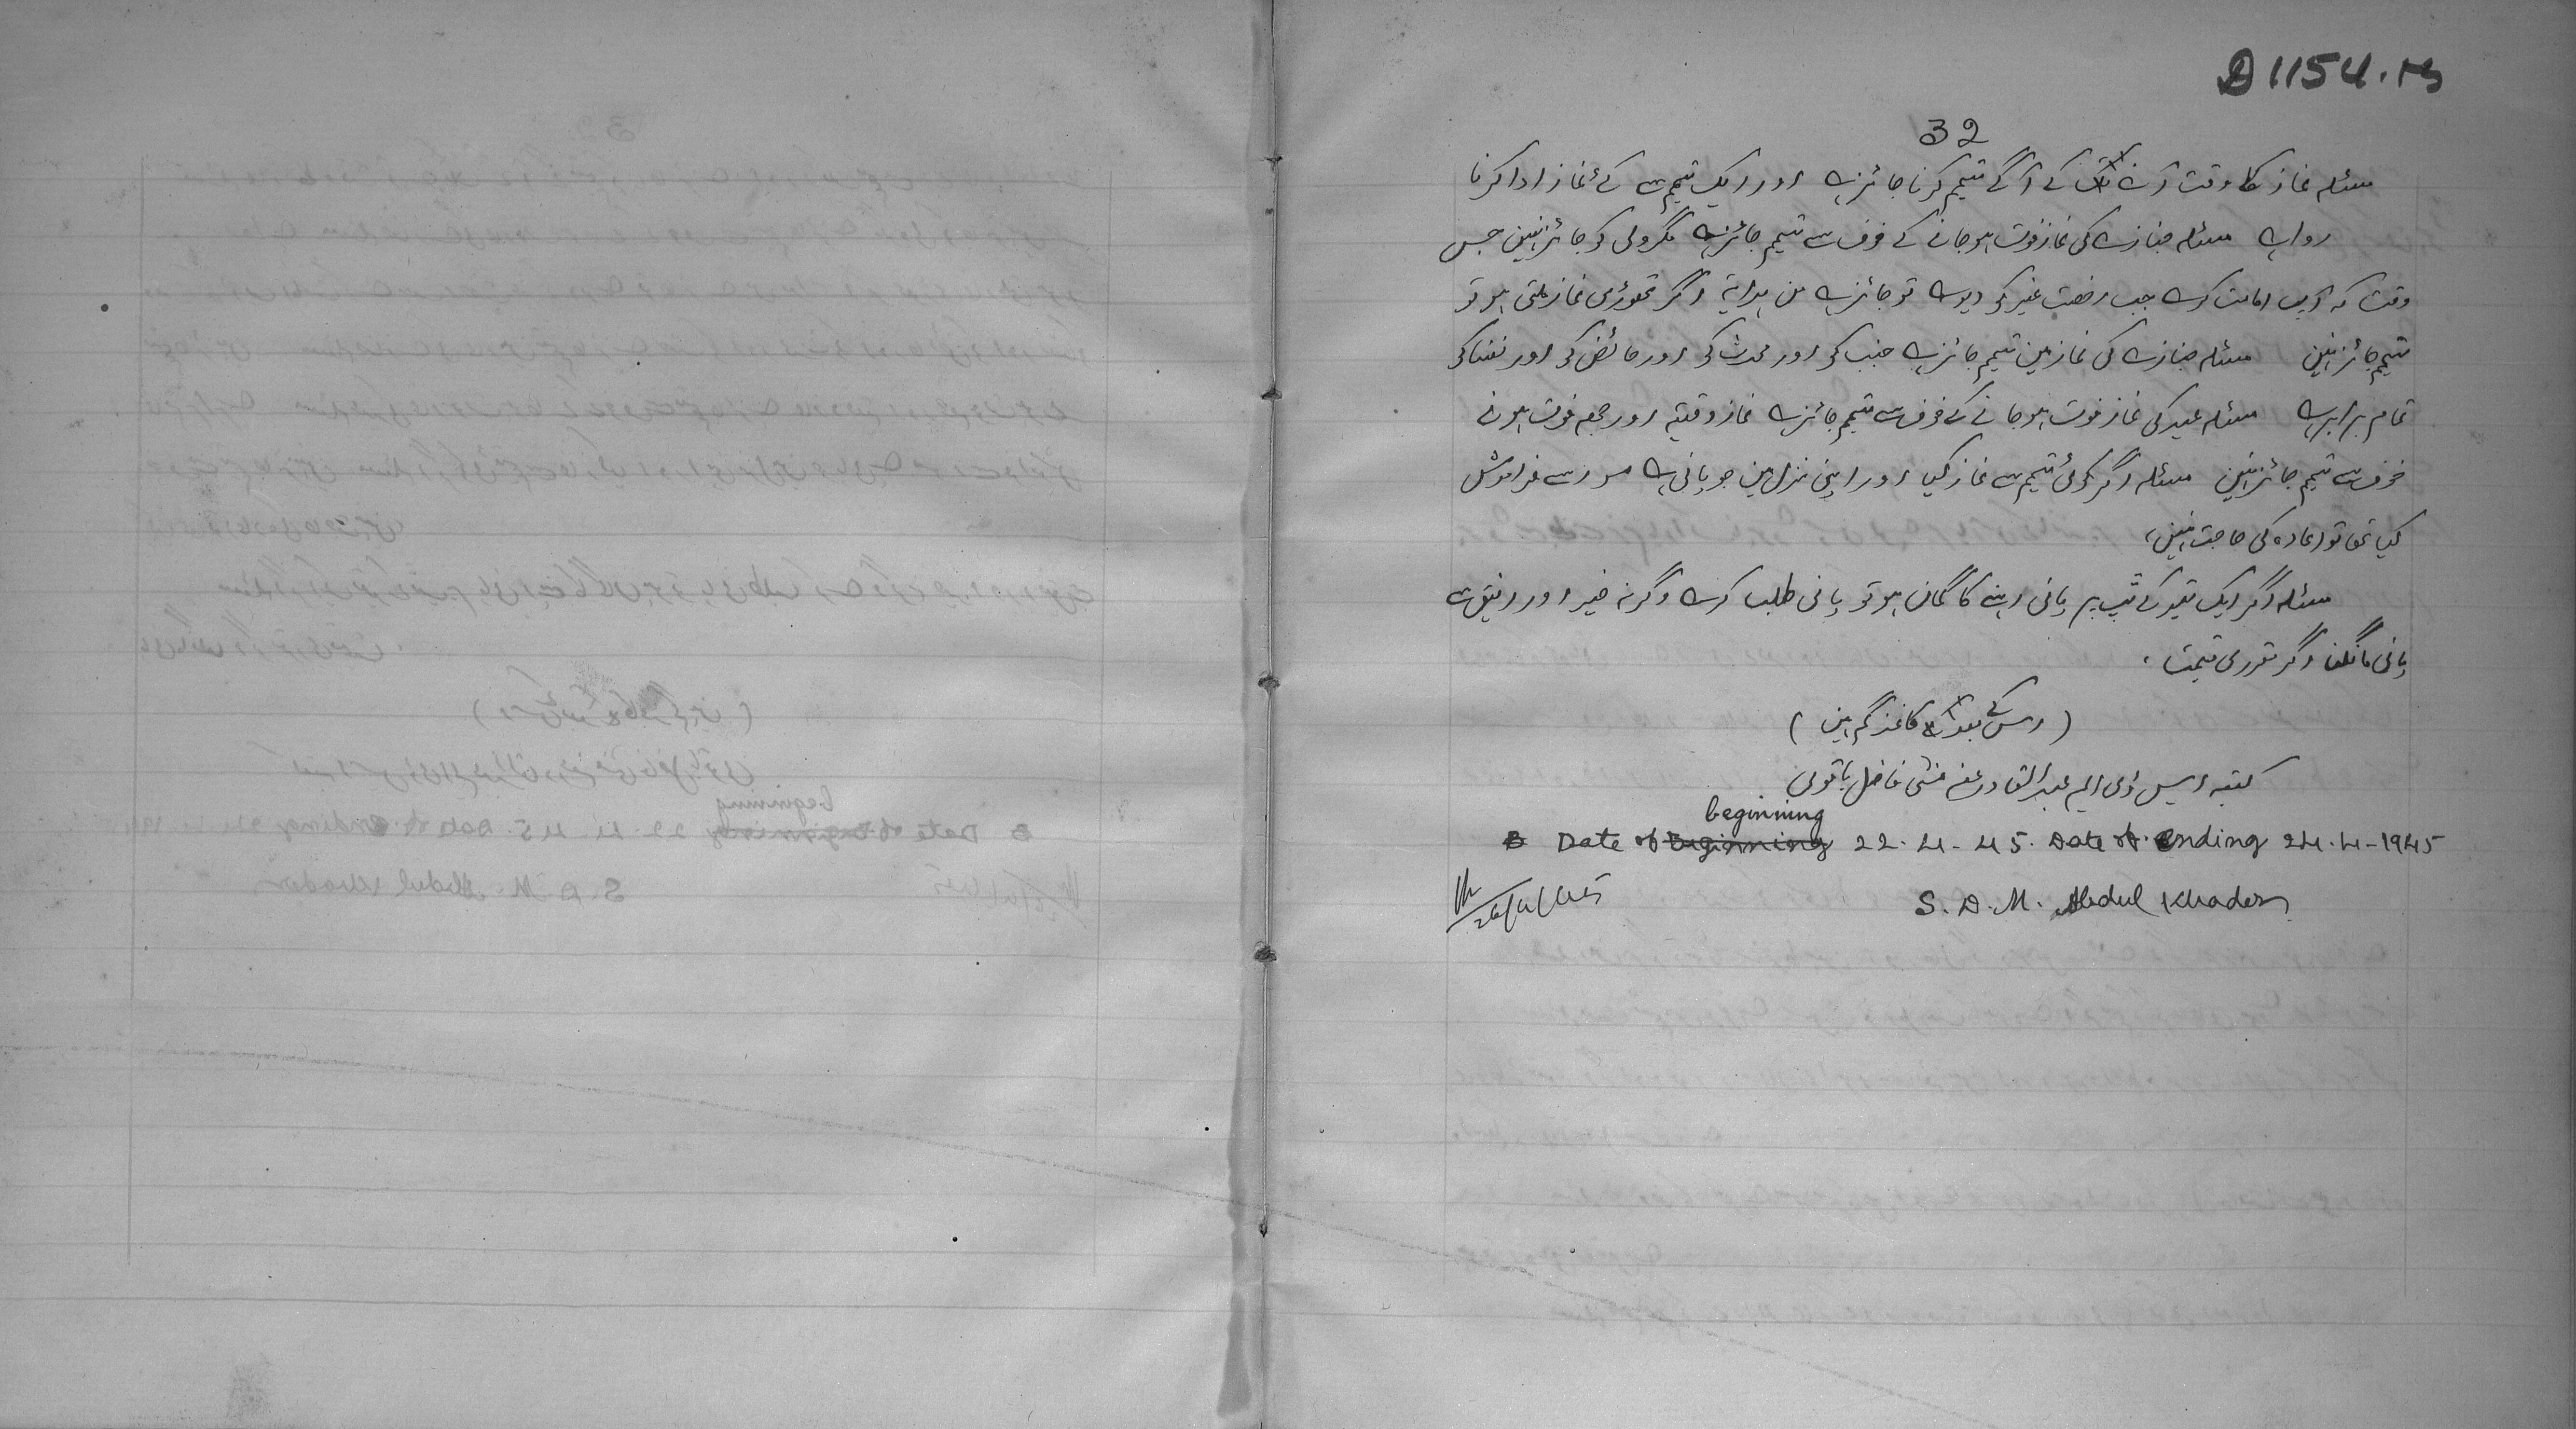 D1154.M
32
مسئلہ نماز کا وقت آنے کے آگے تیمم کرنا جائز ہے اور ایک تیمم سے کئے نماز ادا کرنا
روا ہے مسئلہ جنازے کی نماز فوت ہوجانے کے خوف سے تیمم جائز ہے مگر ولی کو جائز نہیں جس
وقت کہ آپ امامت کرے جب رخصت غیر کو دیوے تو جائز ہے من ہدایۃ اگر تھوڑی نماز ملتی ہو تو
تیمم جائز نہیں مسئلہ جنازے کی نماز میں تیمم جائز ہے جنب کو اور محدث کو اور حائض کو اور نفسا کو
تمام برابر ہے مسئلہ عید کی نماز فوت ہوجانے کے خوف سے تیمم جائز ہے نماز وقتیہ اور جمعہ فوت ہونے
خوف سے تیمم جائز نہیں مسئلہ اگر کوئی تیمم سے نماز کیا اور اپنی منزل میں جو پانی ہے سو اسے فراموش
کیا تھا تو اعادہ کی حاجت نہیں،
مسئلہ اگر ایک تیر کے ٹپ پر پانی اپنے کا گمان ہو تو پانی طلب کرے وگرنہ خیر اور رفیق سے
پانی مانگنا اگر مقرری قیمت ،
(اس کے بعد کا کاغذ گم ہیں)
کتبہ ایس ڈی ایم عبد القادر منشی فاضل باقوی
beginning
Date of Beginning 22.4-45. Date of ending 24.4-1945
S. D. M. Abdul Khader
26/4/45